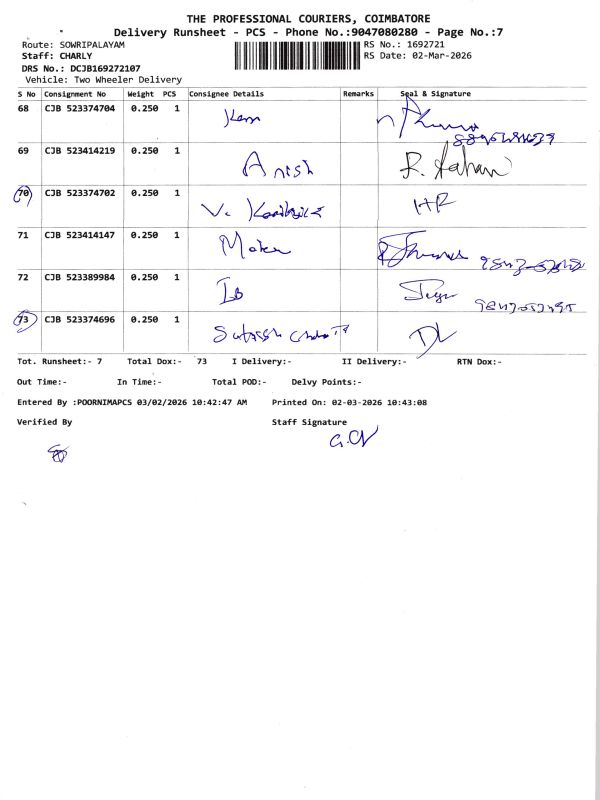 THE PROFESSIONAL COURIERS, COIMBATORE
Delivery Runsheet - PCS - Phone No.:9047080280 - Page No.:7
Route: SOWRIPALAYAM RS No.: 1692721
Staff: CHARLY RS Date: 02-Mar-2026
DRS No.: DCJB169272107
Vehicle: Two Wheeler Delivery
S No Consignment No Weight PCS Consignee Details Remarks Seal & Signature
68 CJB 523374704 0.250 1
69 CJB 523414219 0.250 1 Anish
70 CJB 523374702 0.250 1 V. HR
71 CJB 523414147 0.250 1
72 CJB 523389984 0.250 1
73 CJB 523374696 0.250 1
Tot. Runsheet:- 7 Total Dox:- 73 I Delivery:- II Delivery:- RTN Dox:-
Out Time:- In Time:- Total POD:- Delvy Points:-
Entered By :POORNIMAPCS 03/02/2026 10:42:47 AM Printed On: 02-03-2026 10:43:08
Verified By Staff Signature